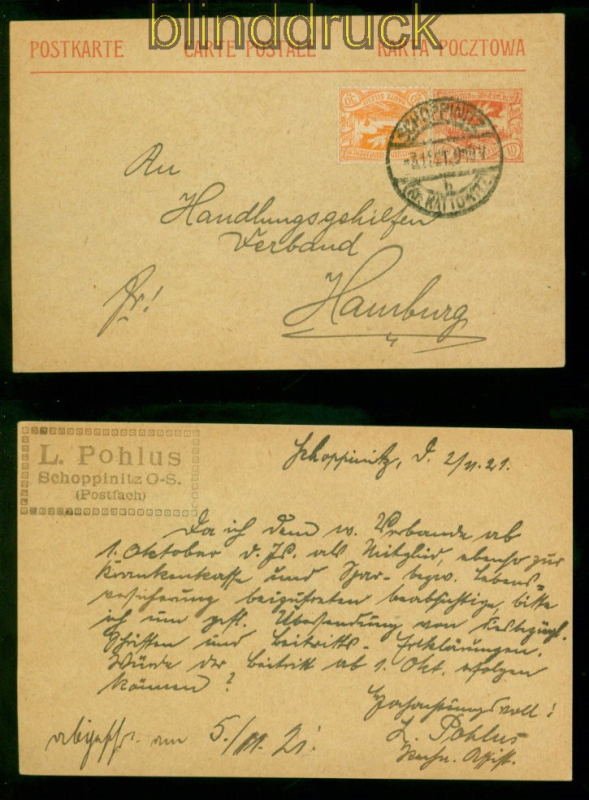 blinddruck
POSTKARTE CARTE POSTALE KARTA POCZTOWA
SCHOPPINITZ
(KR. KATTOWITZ)
An
Handlungsgehilfen
Verband
Hamburg
Fr!
L. Pohlus
Schoppinitz O-S.
(Postfach)
Schoppinitz, d. 2/11. 21.
Da ich dem w. Verbande ab
1. Oktober d. Js. als Mitglied, ebenso zur
Krankenkasse und Spar- bezw. Lebens-
versicherung beizutreten beabsichtige, bitte
ich um gefl. Übersendung von diesbezügl.
und Beitritts-Erklärungen.
Würde der Beitritt ab 1. Okt. erfolgen
können?
Hochachtungsvoll!
L. Pohlus
abgesch. am 5./11. 21.